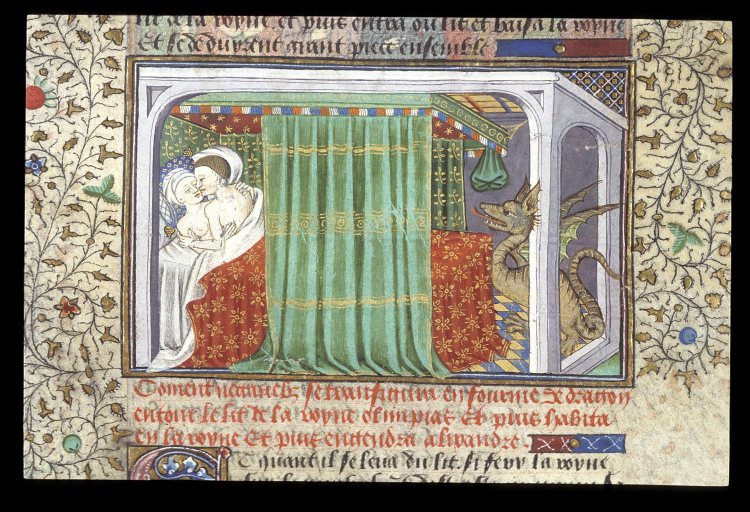 lit de la royne et puis entra ou lit et baisa la royne
Et se deduyrent grant piece ensemble
Coment nectanebus se transfigura en fourme de dragon
entour le lit de la royne olimpias Et puis habita
en la royne Et puis engendra alixandre
Et quant il se leva du lit. si fery la royne